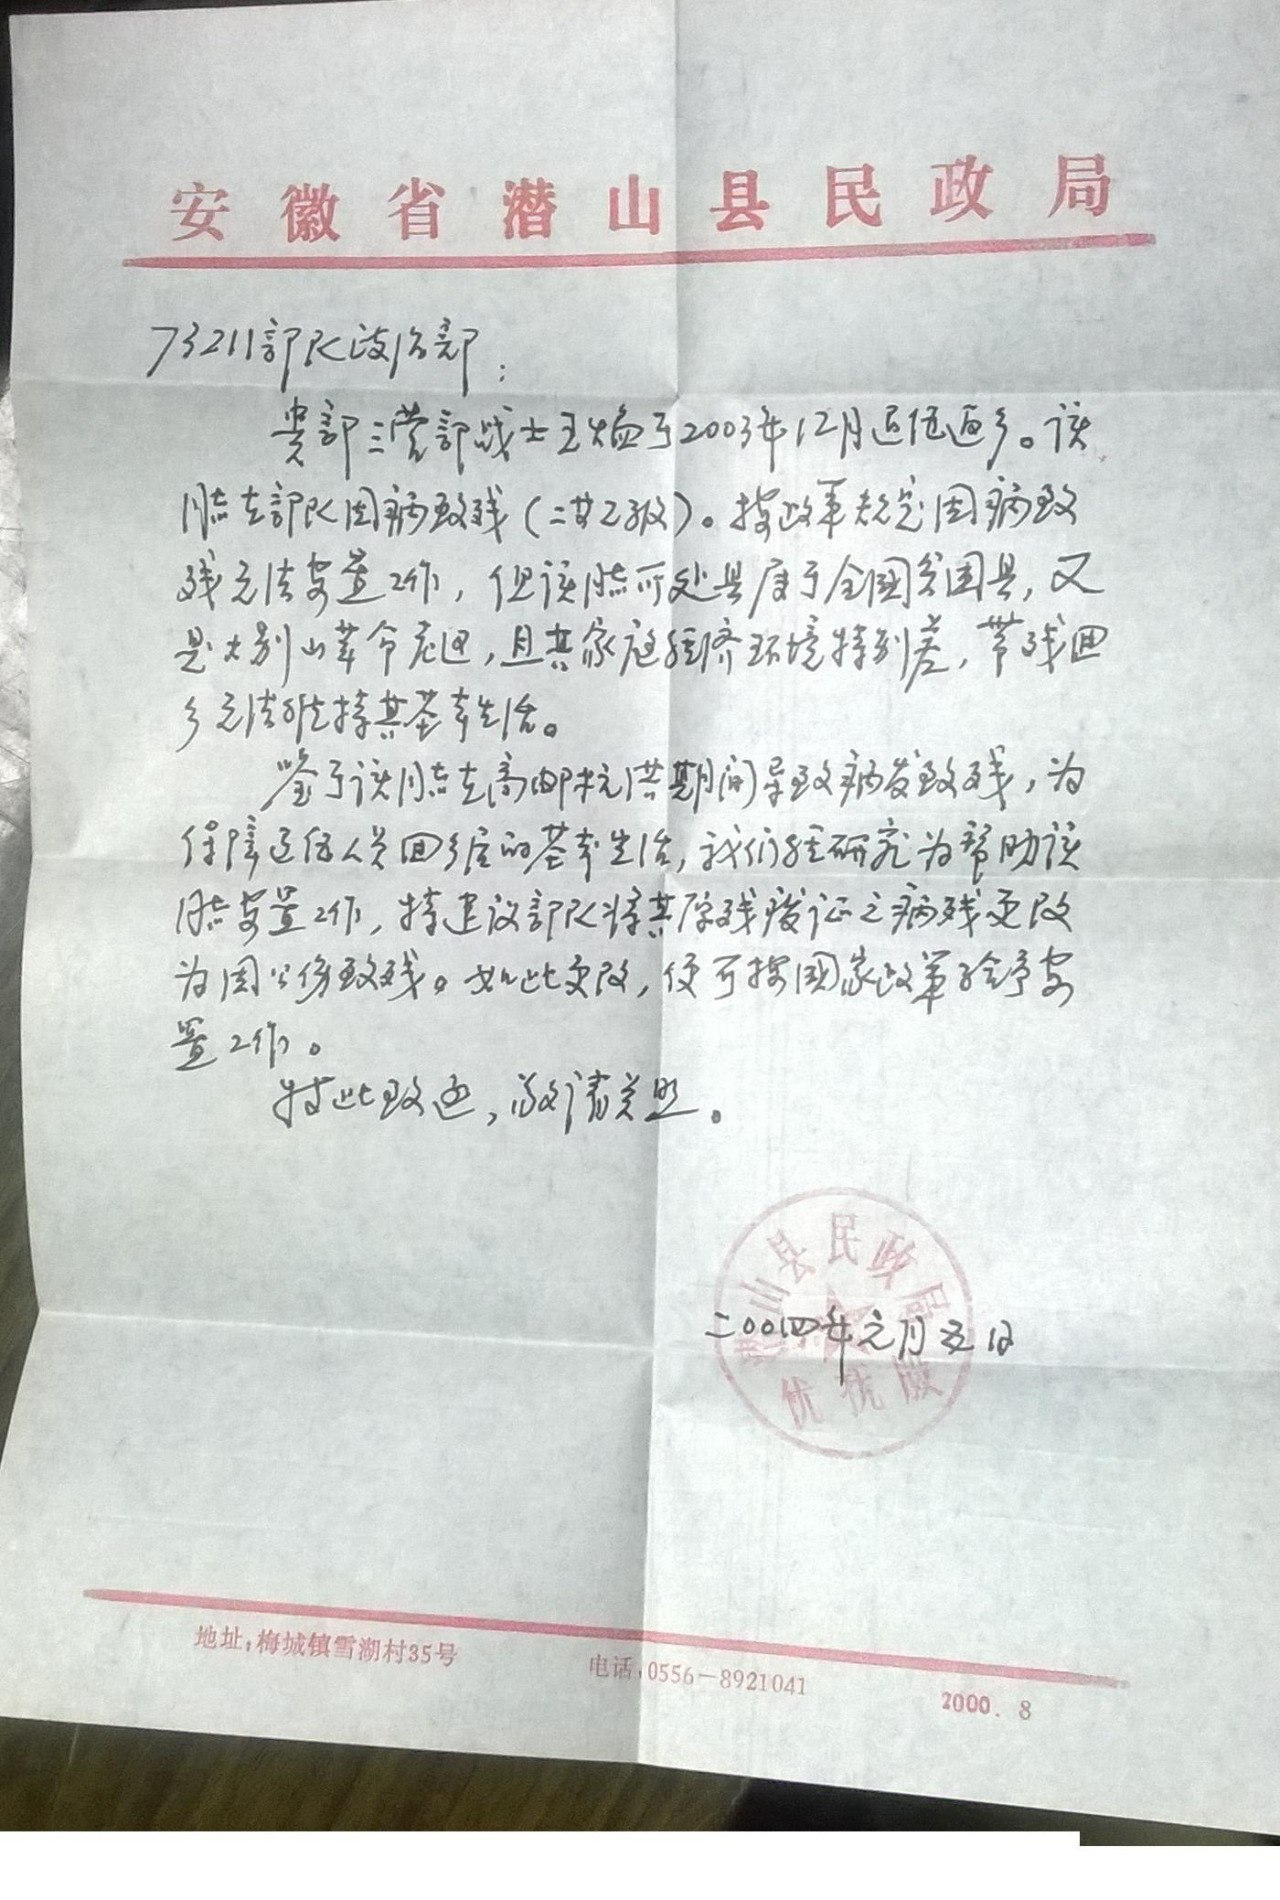 安徽省潜山县民政局
73211部队政治部：
贵部三营部战士王焰于2003年12月退伍返乡。该
同志在部队因病致残（二等乙级）。按政策规定因病致
残无法安置工作，但该同志所处县属于全国贫困县，又
是大别山革命老区，且其家庭经济环境特别差，带残回
乡无法维持其基本生活。
鉴于该同志在高邮抗洪期间导致病发致残，为
保障退伍人员回乡后的基本生活，我们经研究为帮助该
同志安置工作，特建议部队将其原残废证之病残更改
为因公伤致残。如此更改，便可按国家政策给予安
置工作。
特此致函，敬请关照。
潜山县民政局
二00四年元月五日
优抚股
地址：梅城镇雪湖村35号 电话：0556－8921041 2000．8